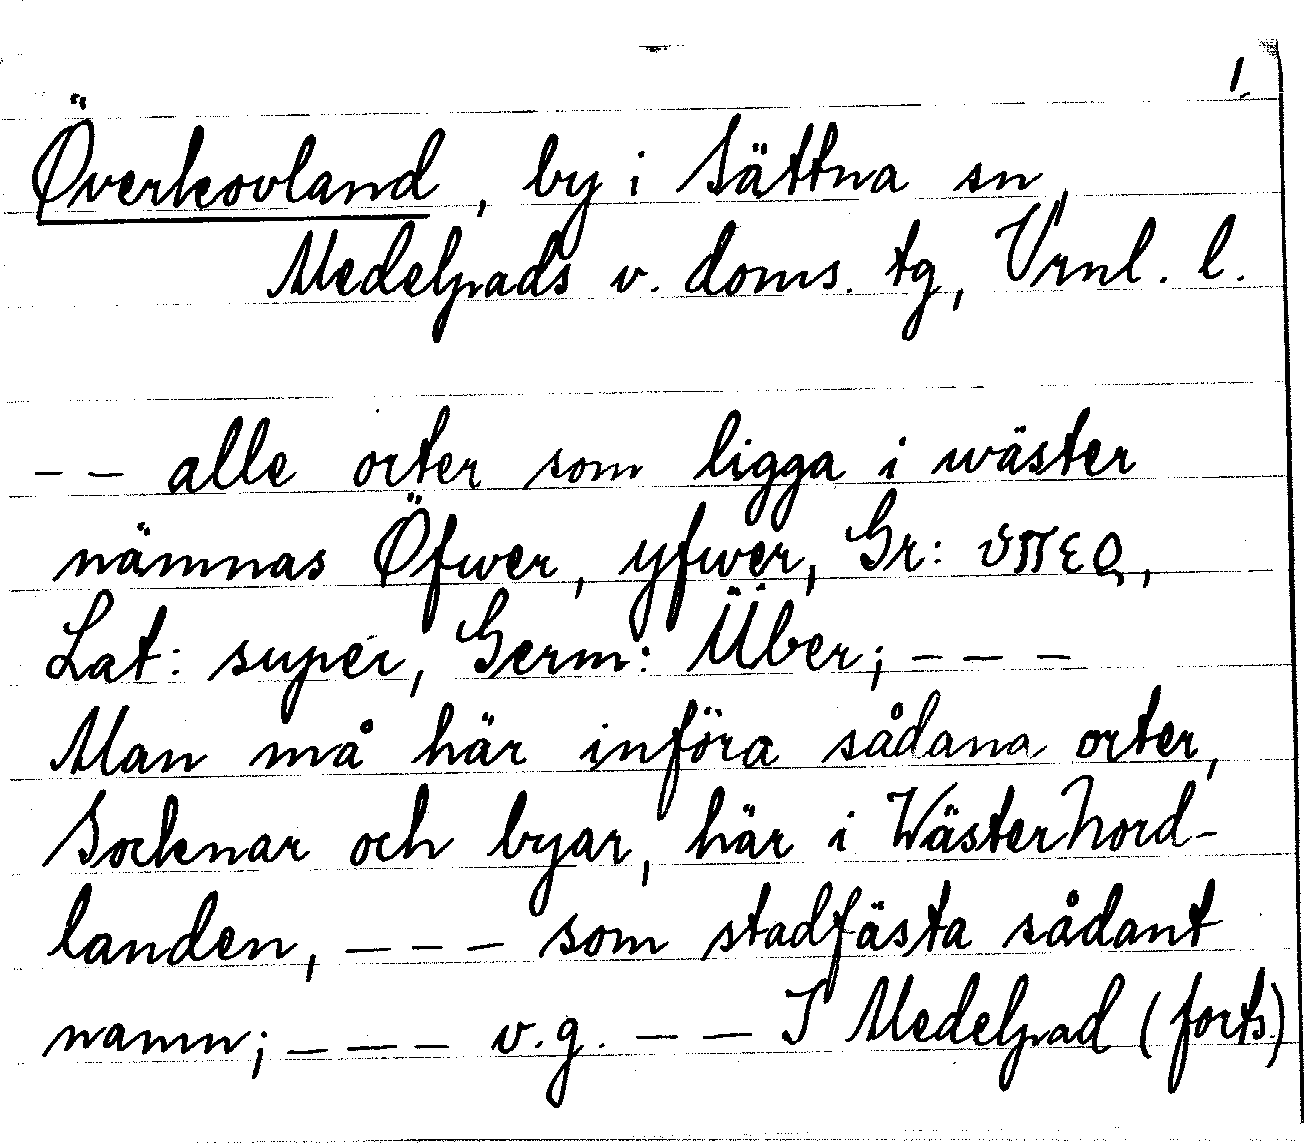 1.
Överkovland, by i Sättna sn,
Medelpads v. doms. tg, Vrnl. l.
-- alle orter som ligga i wäster
nämnas Öfwer, yfwer, Gr: ὑπερ,
Lat: super, Germ: Über; ---
Man må här införa sådana orter,
Socknar och byar, här i WästerNord-
landen, --- som stadfästa sådant
namn; --- v.g. -- I Medelpad (forts.)